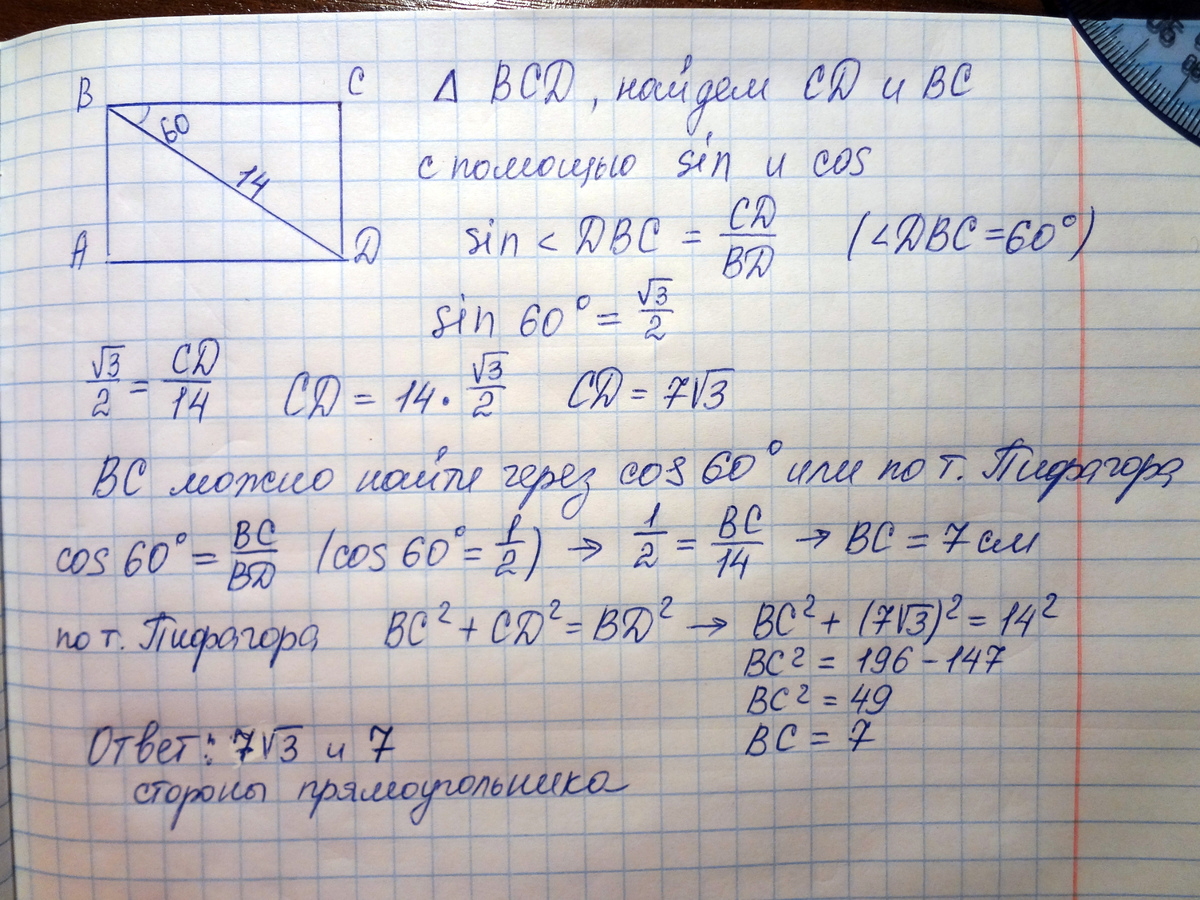 B
C
60
14
A
D
Δ BCD, найдем CD и BC
с помощью sin и cos
sin < DBC = CD/BD (<DBC = 60°)
sin 60° = √3/2
√3/2 = CD/14 CD = 14 · √3/2 CD = 7√3
BC можно найти через cos 60° или по т. Пифагора
cos 60° = BC/BD (cos 60° = 1/2) → 1/2 = BC/14 → BC = 7 см
по т. Пифагора BC² + CD² = BD² → BC² + (7√3)² = 14²
BC² = 196 - 147
BC² = 49
BC = 7
Ответ: 7√3 и 7
стороны прямоугольника